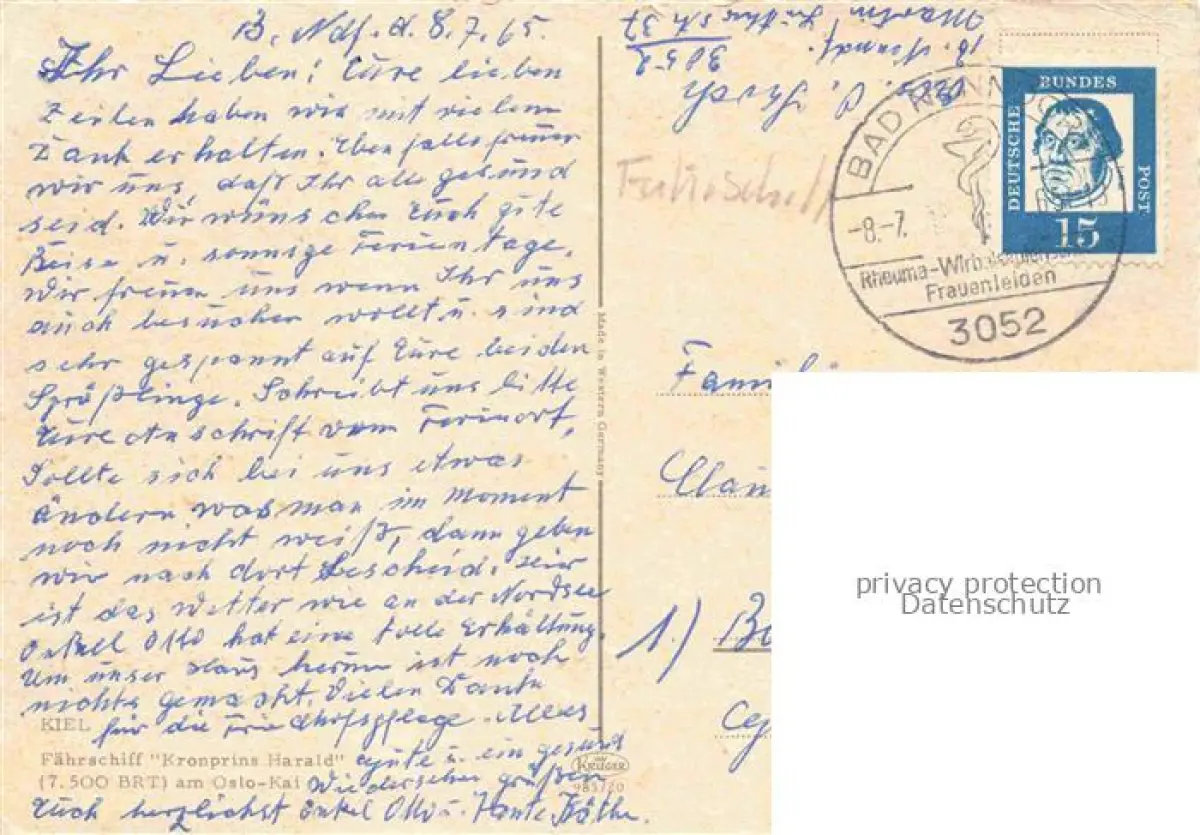 B. Ndf. d. 8.7.65.
Ihr Lieben! Eure lieben
Zeilen haben wir mit vielem
Dank erhalten. Ebenfalls freuen
wir uns, daß Ihr alle gesund
seid. Wir wünschen Euch gute
Reise u. sonnige Ferientage.
Wir freuen uns wenn Ihr uns
auch besuchen wollt u. sind
sehr gespannt auf Eure beiden
Sprößlinge. Schreibt uns bitte
Eure Anschrift vom Ferienort,
Sollte sich bei uns etwas
ändern was man im Moment
noch nicht weiß, dann geben
wir nach dort Bescheid. Hier
ist das Wetter wie an der Nordsee
Onkel Otto hat eine tolle Erkältung.
Um unser Haus herum ist noch
nichts gemacht. Vielen Dank
für die Friedhofspflege. Alles
gute u. ein gesund
Wiedersehen grüßen
Euch herzlichst Onkel Otto u. Tante Käthe.
KIEL
Fährschiff "Kronprins Harald"
(7.500 BRT) am Oslo-Kai
KRÜGER
985/20
Made in Western Germany
3052
Fährschiff
BAD NENNDORF
-8.-7.
Rheuma-Wirbelsäulen
Frauenleiden
3052
DEUTSCHE
BUNDES
POST
15
Famili
1.)
privacy protection
Datenschutz